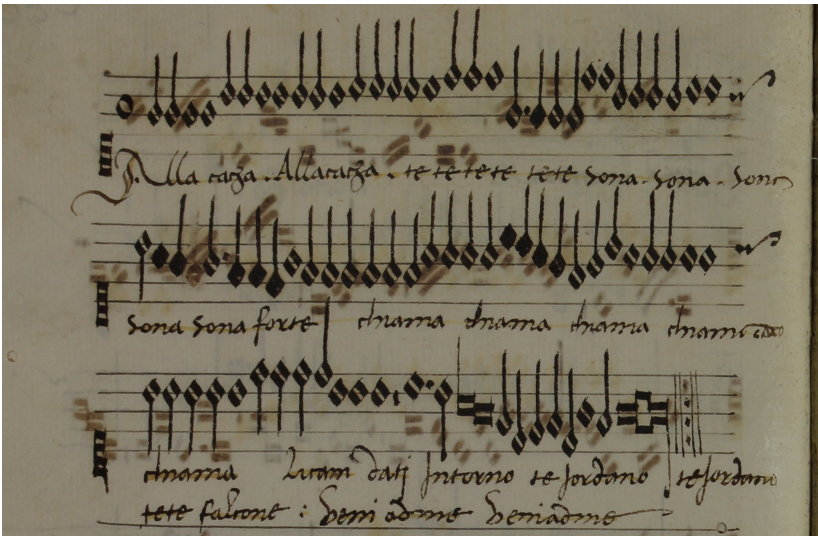 Alla cacza. Alla cacza. te te te te te te sona. sona. sona
sona sona forte chiama chiama chiama chiama
chiama li cani dati Intorno te Jordano te Jordano
te te falcone : veni ad me veni ad me